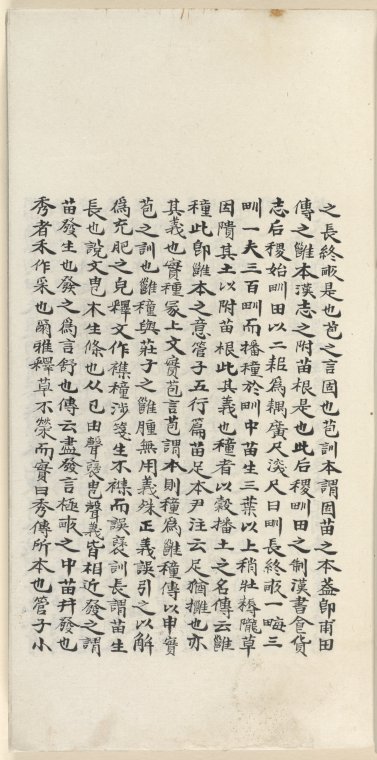 之長終畝是也苞之言固也苞訓本謂因苗之本蓋卽甫田
傳之雝本漢志之附苗根是也此后稷甽田之制漢書食貨
志后稷始甽田以二耜爲耦廣尺深尺曰甽長終畝一畮三
甽一夫三百甽而播種於甽中苗生三葉以上稍壯耨隴草
因隤其土以附苗根此其義也種者以穀播土之名傳云雝
種此卽雝本之意管子五行篇苗足本尹注云足猶擁也亦
其義也實種冡上文實苞言苞謂本則種爲雝種傳以申實
苞之訓也雝種與莊子之雝腫無用義殊正義誤引之以解
爲充肥之皃釋文作襍種涉箋生不襍而誤褎訓長謂苗生
長也說文皀木生條也从𢎘由聲褎皀聲義皆相近發之謂
苗發生也發之爲言舒也傳云盡發言極畝之中苗幷發也
秀者禾作采也爾雅釋草不榮而實曰秀傳所本也管子小